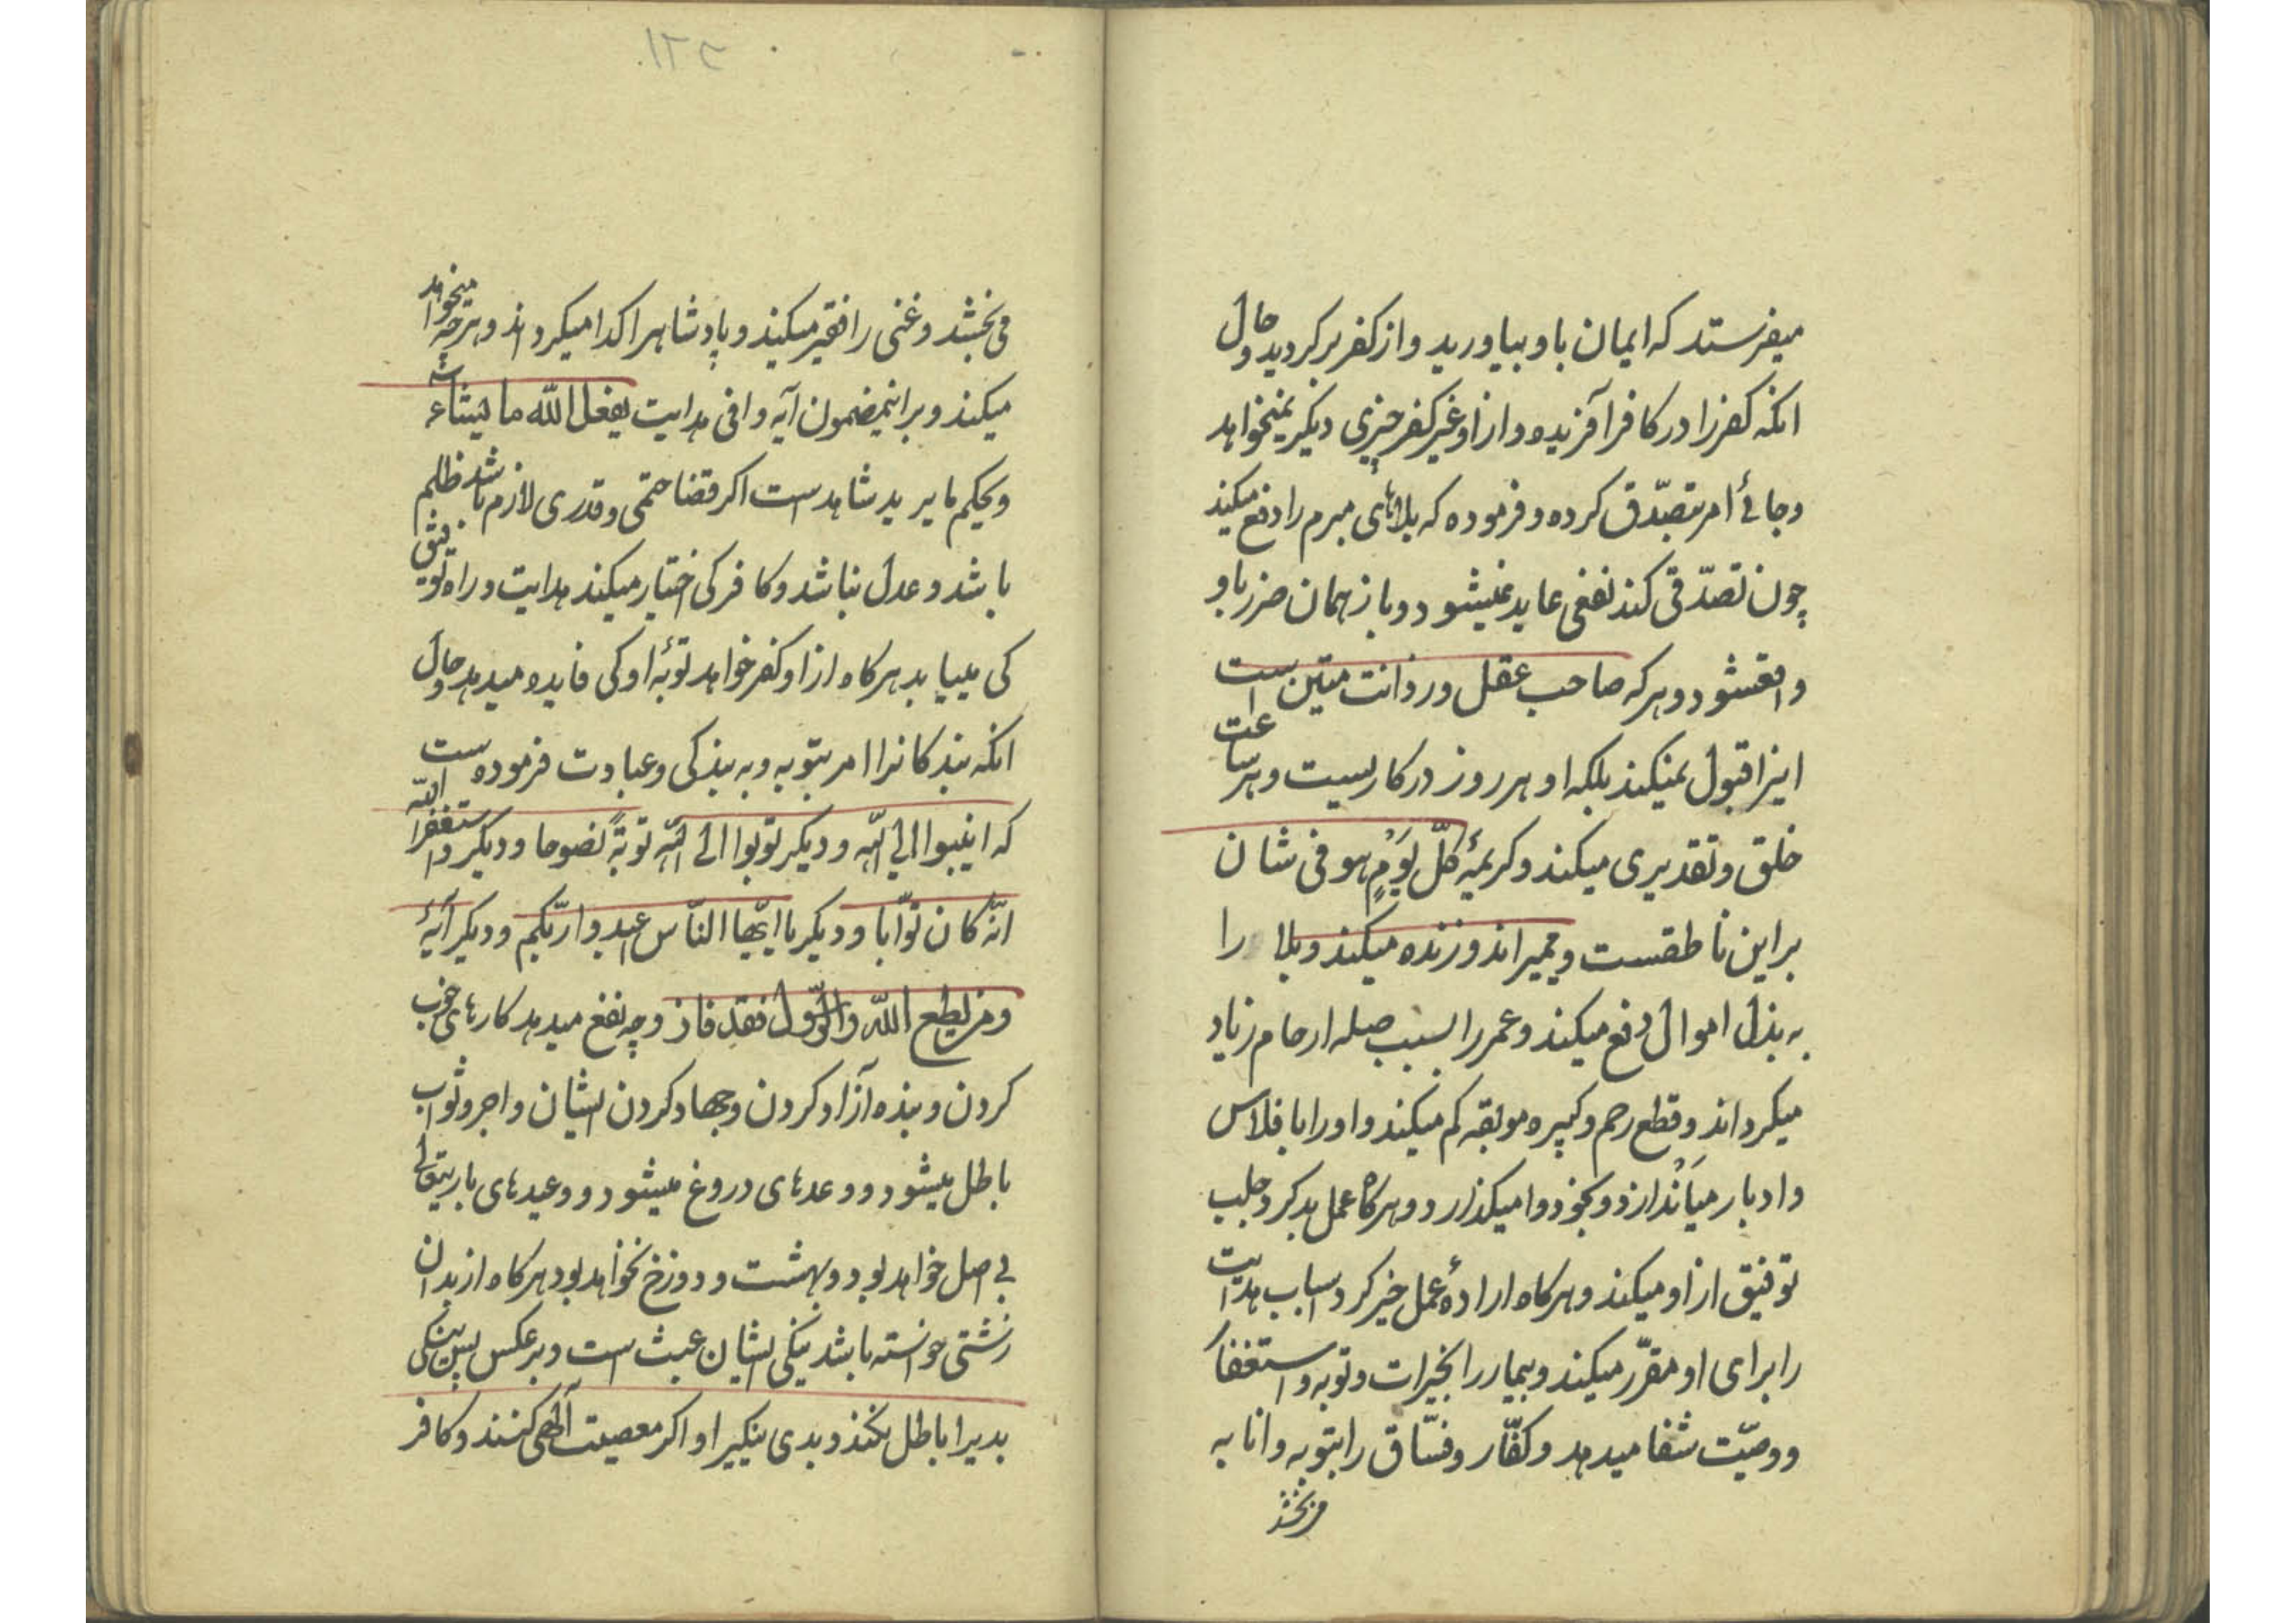 میفرستد که ایمان باو بیاورید و از کفر برگردید و حال
انکه کفر را در کافر آفریده و از او غیر کفر چیزی دیگر نمیخواهد
و جائی امر بتصدّق کرده و فرموده که بلاهای مبرم را دفع میکند
چون تصدّقی کند نفعی عاید نمیشود و باز همان ضرر باو
واقعشود و هر که صاحب عقل و رزانت متین است
اینرا قبول نمیکند بلکه او هر روز در کاریست و هر ساعت
خلق و تقدیری میکند و کریمهٔ کلّ یَوْمٍ هو فی شان
بر این ناطقست و میمیراند و زنده میکند و بلا را
به بذل اموال دفع میکند و عمر را بسبب صله ارحام زیاد
میکرداند و قطع رحم و کبیره موبقه کم میکند و او را بافلاس
و ادبار میاَنْدازد و بخود وا میکذارد و هر کاه عمل بد کرد و جلب
توفیق از او میکند و هر کاه ارادهٔ عمل خیر کرد اسباب هدایت
را برای او مقرّر میکند و بیمار را بخیرات و توبه و استغفار
و وصیّت شفا میدهد و کفّار و فسّاق را بتوبه و انابه
می بخشد
می بخشد و غنی را فقیر میکند و پادشاهرا کدا میکرداند و هر چه میخواهد
میکند و بر اینمضمون آیه وافی هدایت یفعل الله ما یشاء
و یحکم ما یرید شاهد است اکر قضا حتمی و قدری لازم باشد ظلم
باشد و عدل نباشد و کافر کی اختیار میکند هدایت و راه توفیق
کی مییابد هر کاه از او کفر خواهد توبهٔ او کی فایده میدهد و حال
انکه بندکانرا امر بتوبه و به بندکی و عبادت فرموده است
که انیبوا الی الله و دیکر توبوا الی الله توبةً نصوحا و دیکر و استغفر الله
انّه کان توّابا و دیکر یا ایّها النّاس اعبدوا ربّکم و دیکر آیهٔ
و من یطع الله و الرّسول فقد فاز و چه نفع میدهد کارهای خوب
کردن و بنده آزاد کردن و جهاد کردن ایشان و اجر و ثواب
باطل میشود و وعدهای دروغ میشود و وعیدهای باریتعالی
بی اصل خواهد بود و بهشت و دوزخ نخواهد بود هر کاه از بدان
زشتی خواسته باشد نیکی ایشان عبث است و بر عکس پس نیکی
بدیرا باطل نکند و بدی نیکیرا و اکر معصیت آلهی کنند و کافر